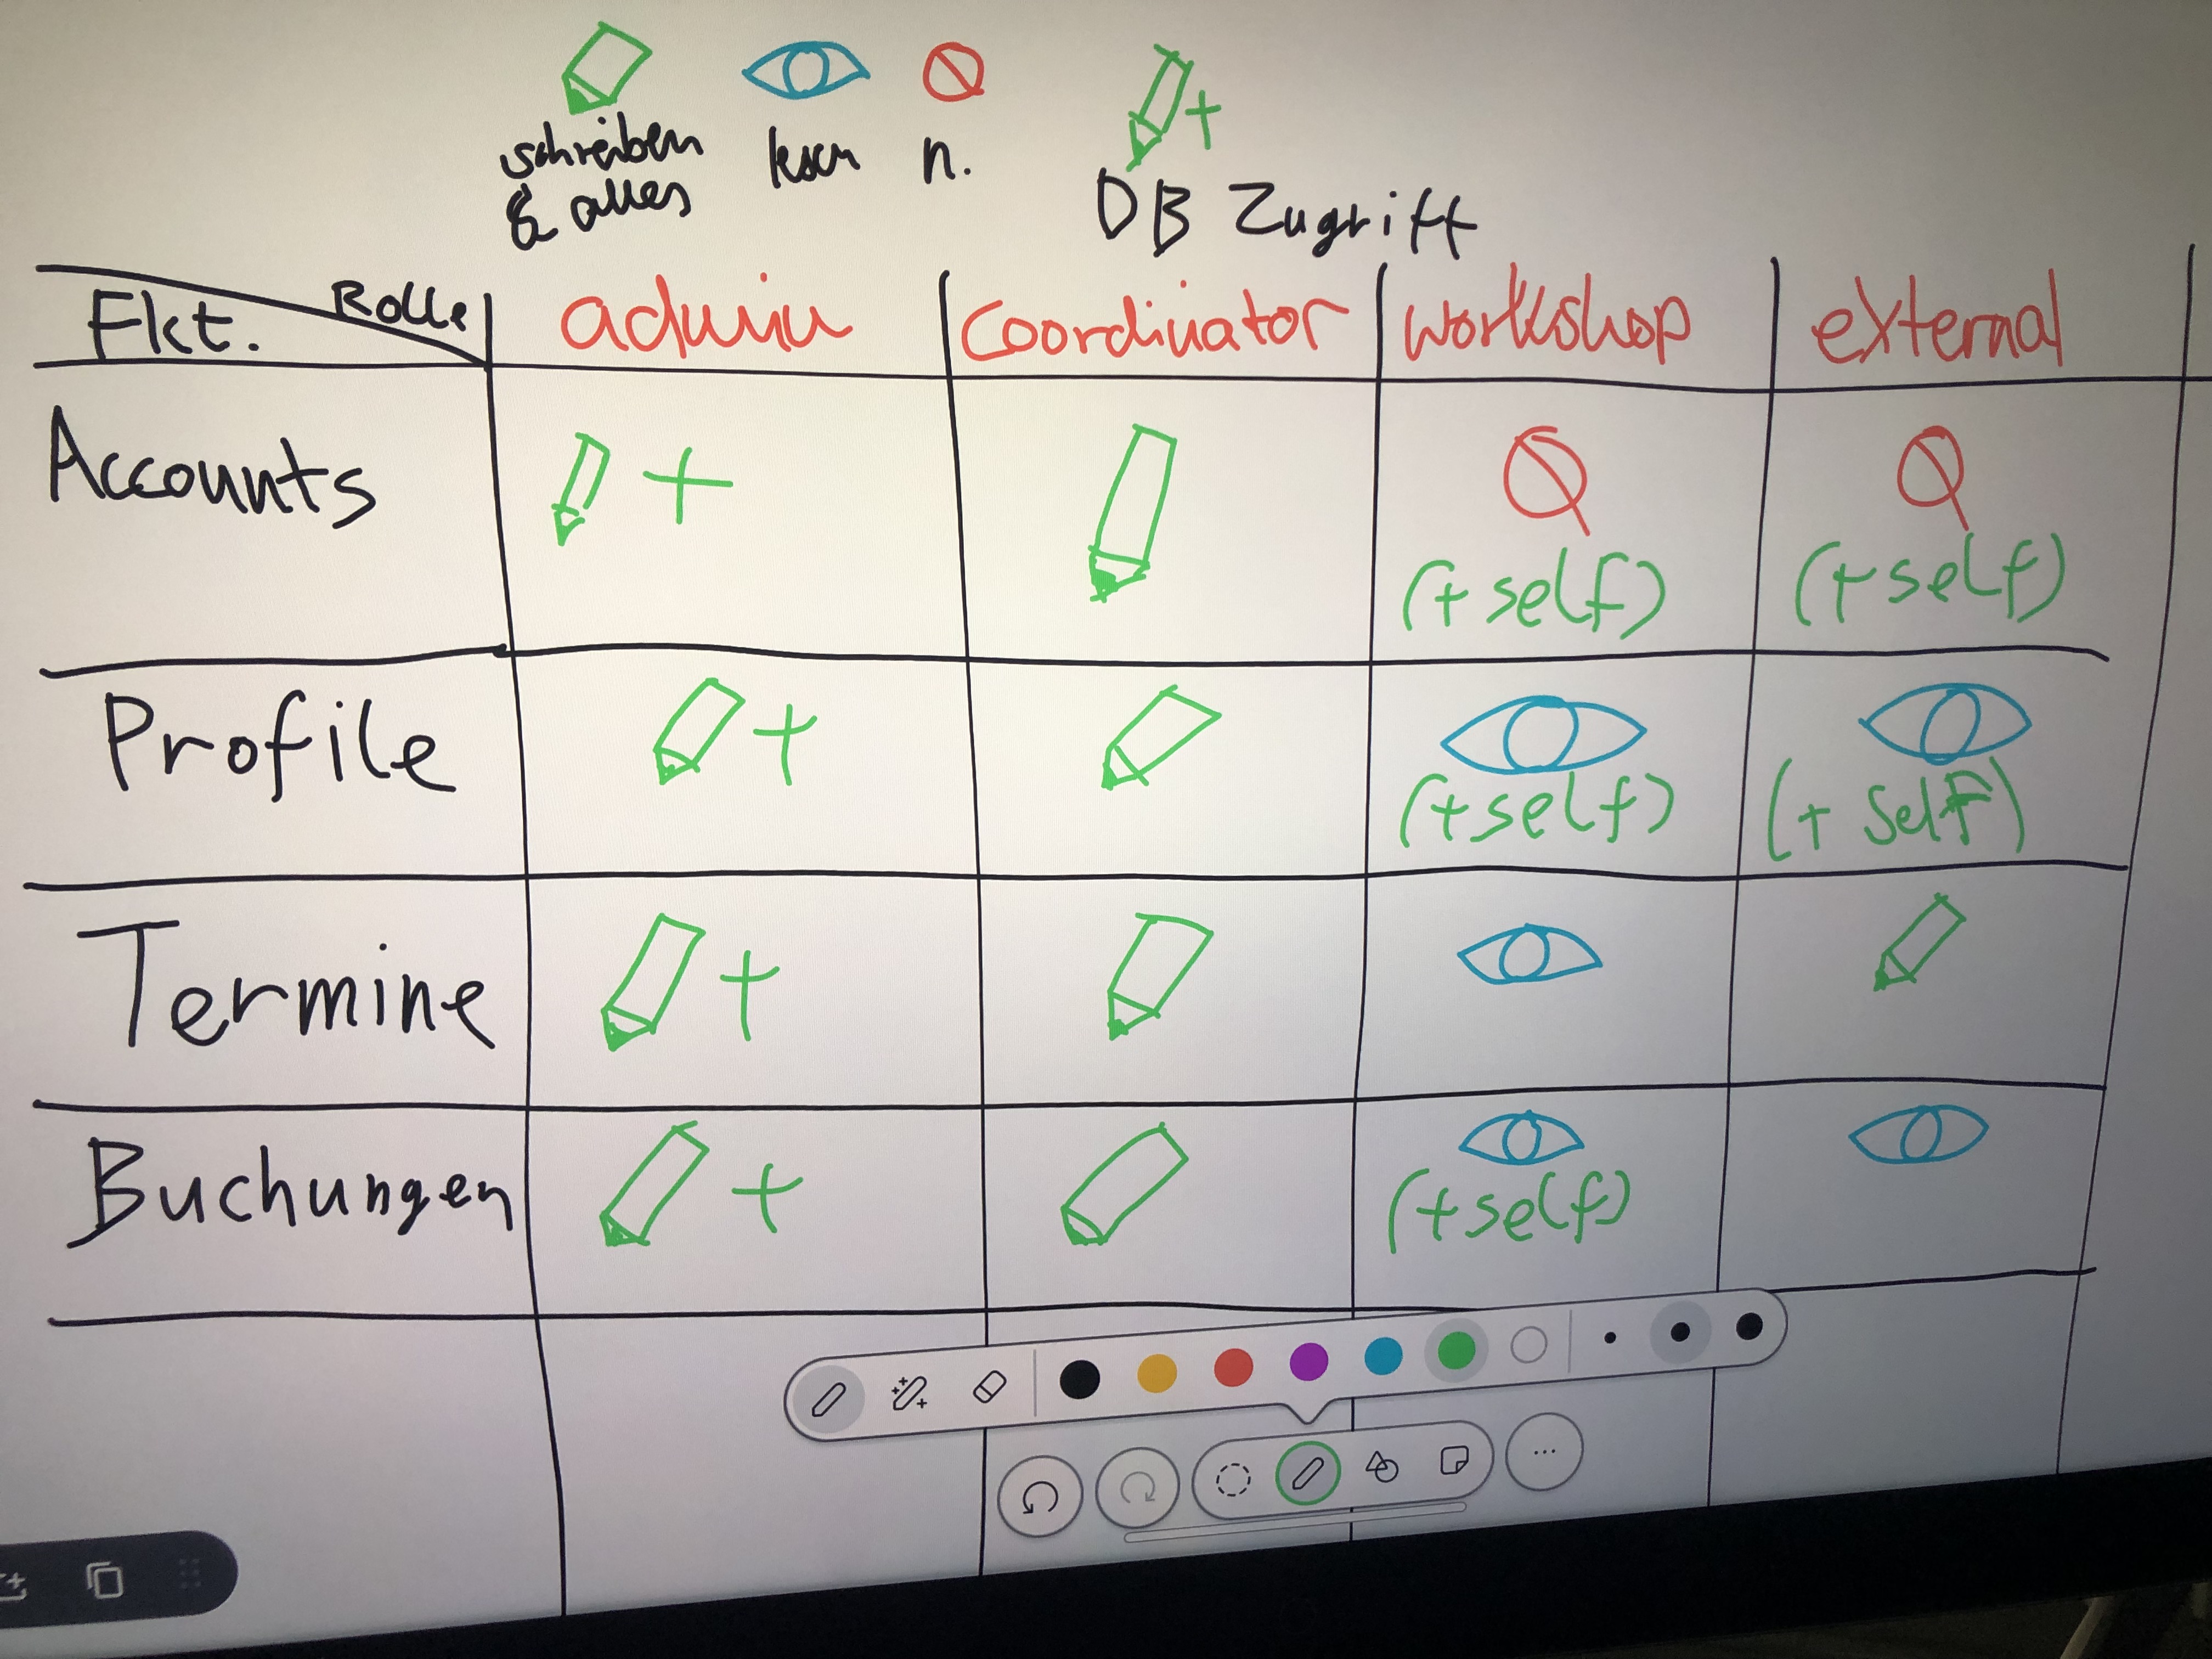 schreiben lesen n.
& alles
DB Zugriff
Fkt. Rolle admin coordinator workshop external
Accounts + (+ self) (+ self)
Profile + (+ self) (+ self)
Termine +
Buchungen + (+ self)